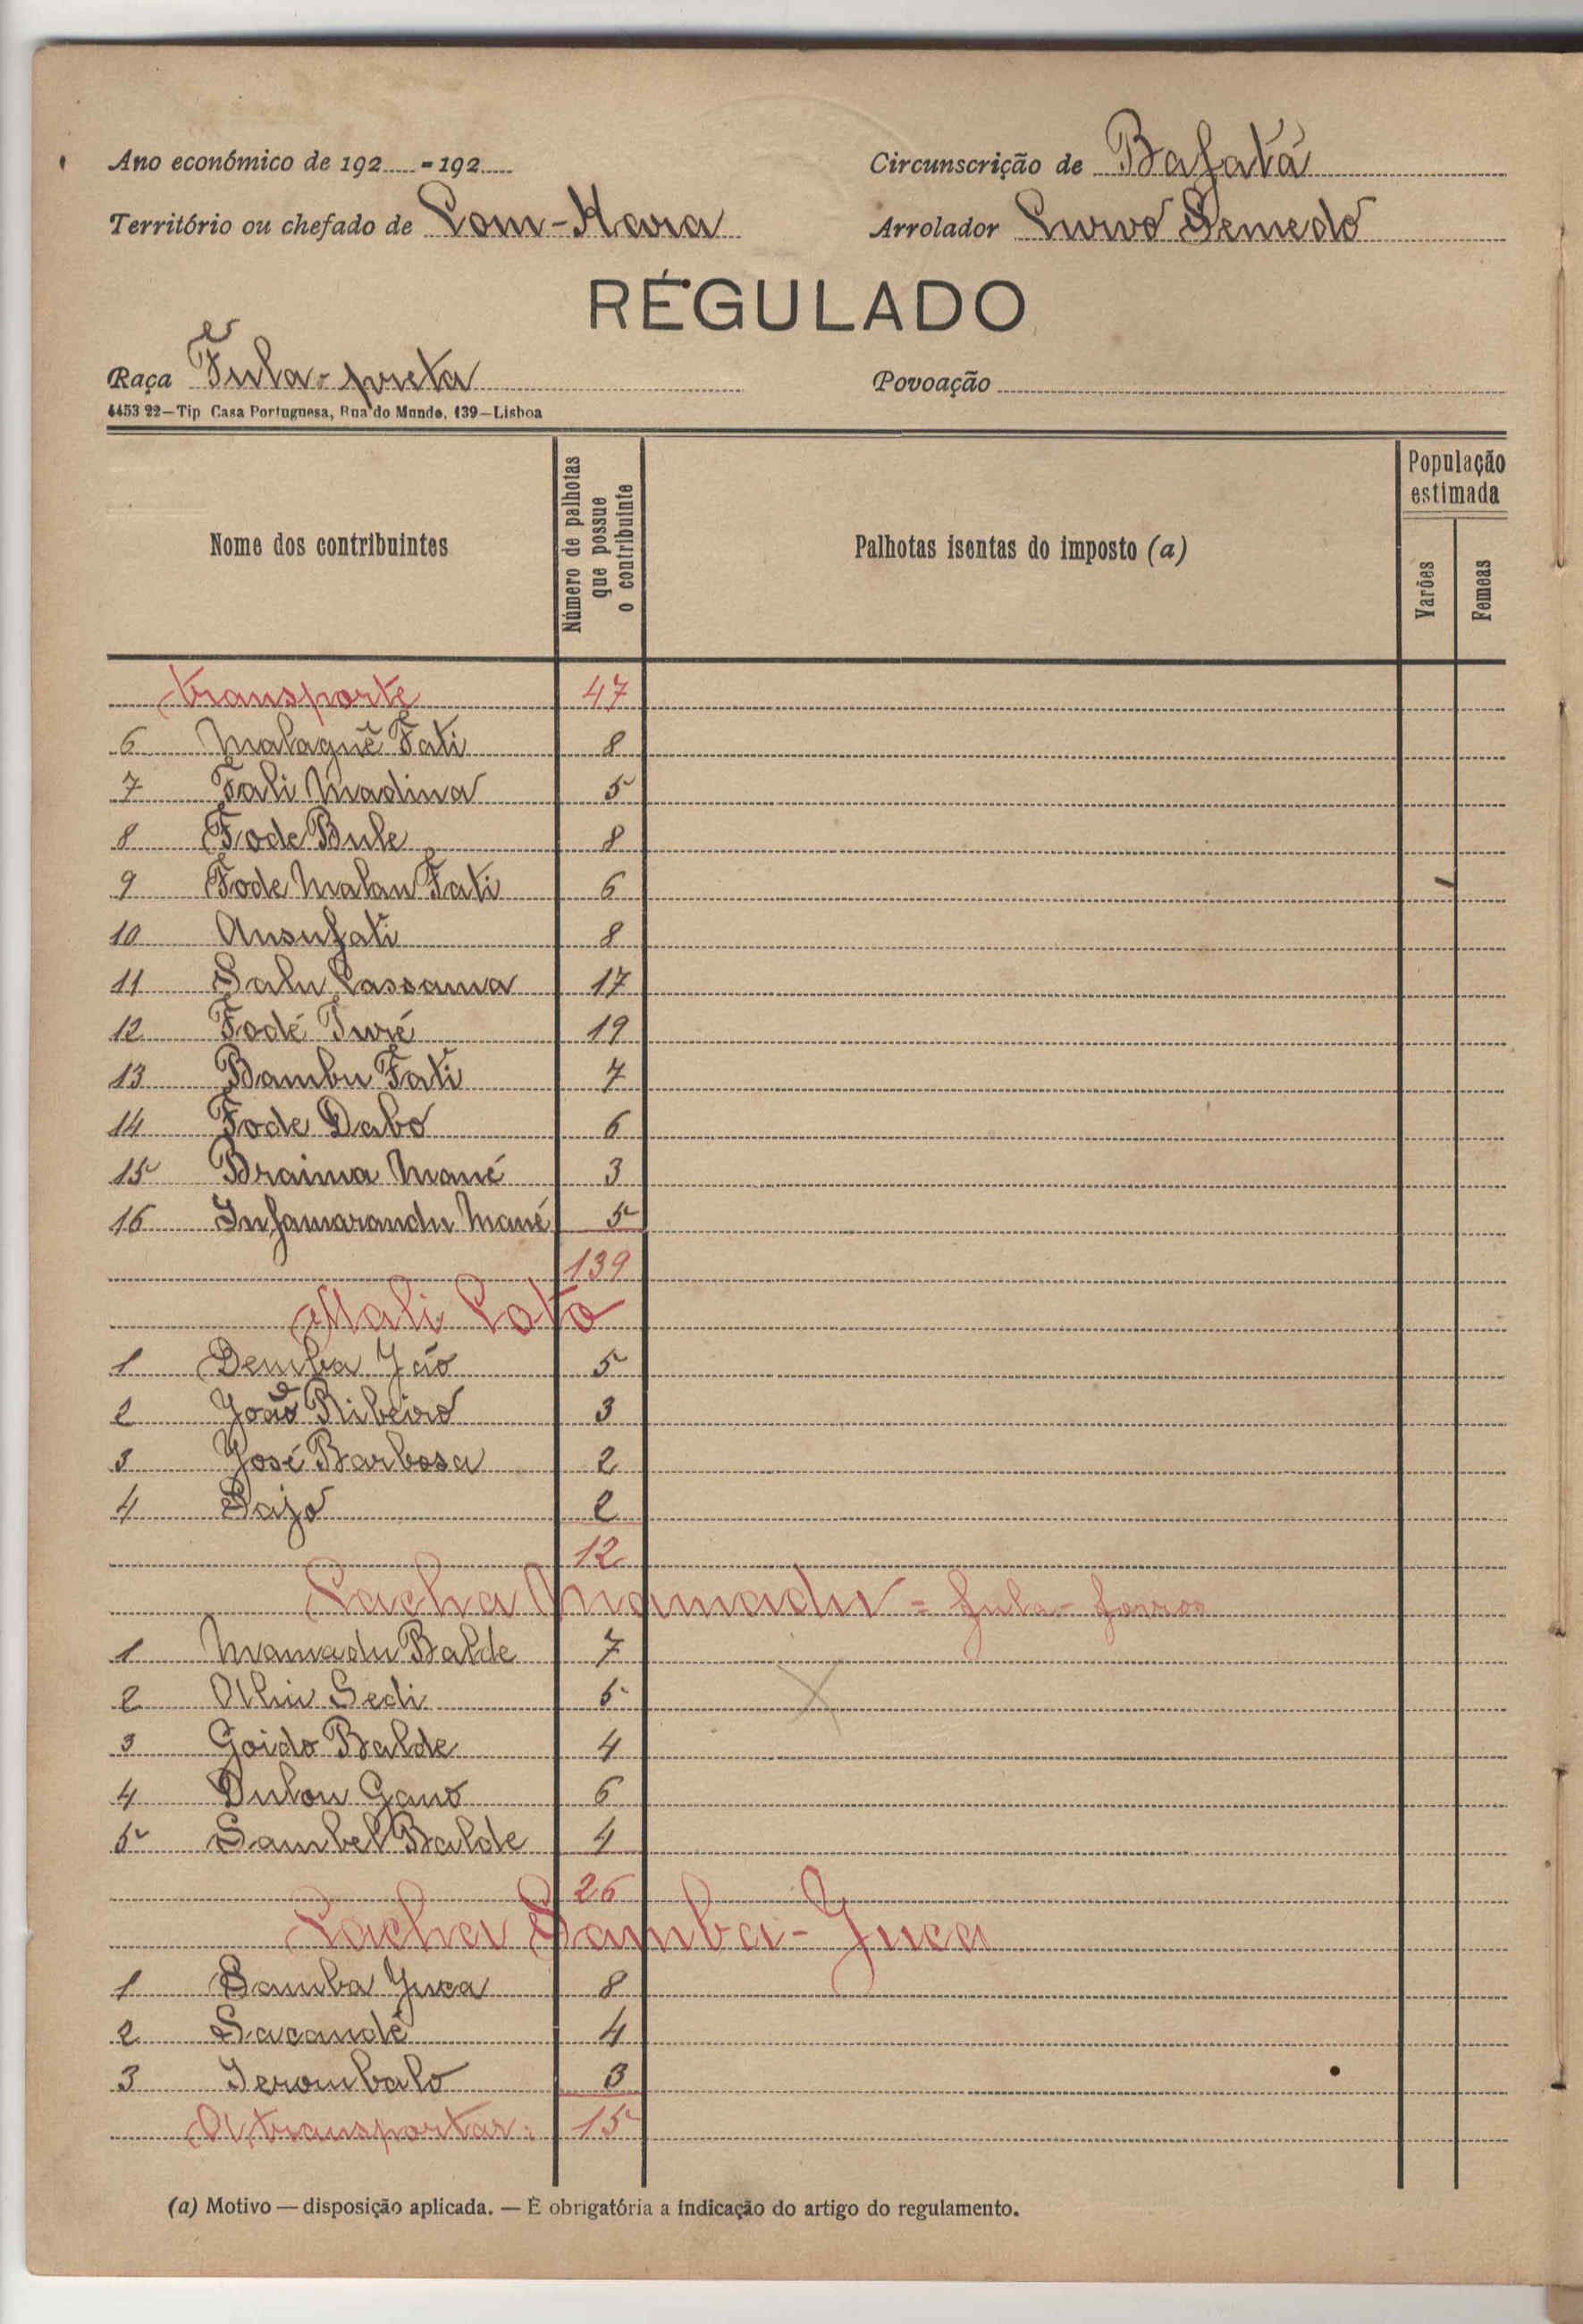 Ano económico de 192 - 192
Circunscrição de Bafatá
Território ou chefado de
Arrolador Semedo
RÉGULADO
Raça Fula-preta
Povoação
4453 22—Tip Casa Portuguesa, Rua do Mundo, 139—Lisboa
Nome dos contribuintes
Número de palhotas que possue o contribuinte
Palhotas isentas do imposto (a)
População estimada
Varões
Femeas
transporte 47
6 Malaguê Fati 8
7 Fali Madina 5
8 Fode Bule 8
9 Fode Malan Fati 6
10 Ansufati 8
11 Salu Cassama 17
12 Fodé Turé 19
13 Bambu Fati 7
14 Fode Dabo 6
15 Braima Mané 3
16 Infamarandu Mané 5
139
Mali Coto
1 Demba Jáo 5
2 João Ribeiro 3
3 José Barbosa 2
4 Sajo 2
12
Cacha Mamadu = fula-forros
1 Mamadu Balde 7
2 Sedi 5
3 Goido Balde 4
4 Gano 6
5 Sambel Balde 4
26
Cacha Samba-Juca
1 Samba Juca 8
2 Sacandé 4
3 Jerombalo 3
A transportar: 15
(a) Motivo — disposição aplicada. — É obrigatória a indicação do artigo do regulamento.